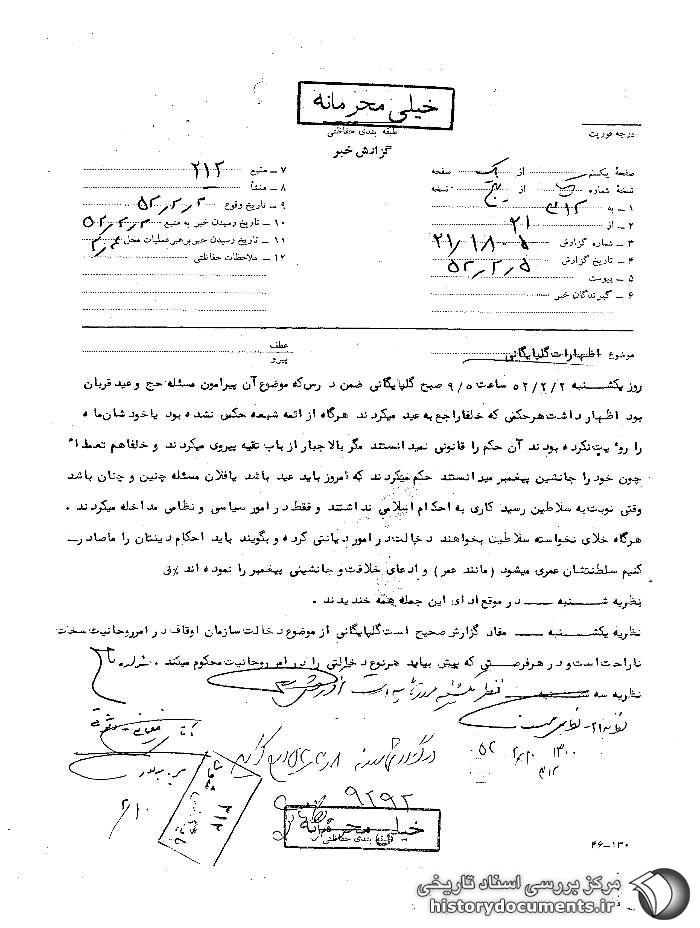 خیلی محرمانه
طبقه بندی حفاظتی
گزارش خبر
درجه فوریت
صفحهٔ یکم از یک صفحه
نسخهٔ شماره از پنج نسخه
۱ ـ به ۳۱۲
۲ ـ از ۲۱
۳ ـ شماره گزارش
۴ ـ تاریخ گزارش ۵۲/۲/۵
۵ ـ پیوست
۶ ـ گیرندگان خبر
۷ ـ منبع ۲۱۲
۸ ـ منشأ
۹ ـ تاریخ وقوع ۵۲/۲/۲
۱۰ ـ تاریخ رسیدن خبر به منبع ۵۲/۲/۲
۱۱ ـ تاریخ رسیدن خبر برهبر عملیات محل
۱۲ ـ ملاحظات حفاظتی
موضوع اظهارات گلپایگانی
عطف
پیرو
روز یکشـنبه ۵۲/۲/۲ ساعت ۹/۵ صبح گلپایگانی ضمن درس که موضوع آن پیرامون مسئله حج و عید قربان
بود اظهار داشت هر حکمی که خلفا راجع به عید میکردند هرگاه از ائمه شیعه حکمی نشده بود یا خودشان ماه
را رؤیت نکرده بودند آن حکم را قانونی نمیدانستند مگر بالاجبار از باب تقیه پیروی میکردند و خلفاهم
چون خود را جانشین پیغمبر میدانستند حکم میکردند که امروز باید عید باشد یا فلان مسئله چنین و چنان باشد
وقتی نوبت به سلاطین رسید کاری به احکام اسلامی نداشتند و فقط در امور سیاسی و نظامی مداخله میکردند .
هرگاه خدای نخواسته سلاطین بخواهند دخالت در امور دیانتی کرده و بگویند باید احکام دینتان را ما صادر
کنیم سلطنتشان عمری میشود (مانند عمر) و ادعای خلافت و جانشینی پیغمبر را نموده اند
نظریه شـنبه ـــ در موقع ادای این جمله همه خندیدند .
نظریه یکشـنبه ـــ مفاد گزارش صحیح است گلپایگانی از موضوع دخالت سازمان اوقاف در امر روحانیت سخت
ناراحت است و در هر فرصتی که پیش بیاید هر نوع دخالتی را در امر روحانیت محکوم میکند .
نظریه سه شنبه ـــ نظریه یکشنبه مورد تایید است
۹۲۹۲
۳۱۲
خیلی محرمانه
طبقه بندی حفاظتی
۴۶-۱۳۰
مرکز بررسی اسناد تاریخی
historydocuments.ir